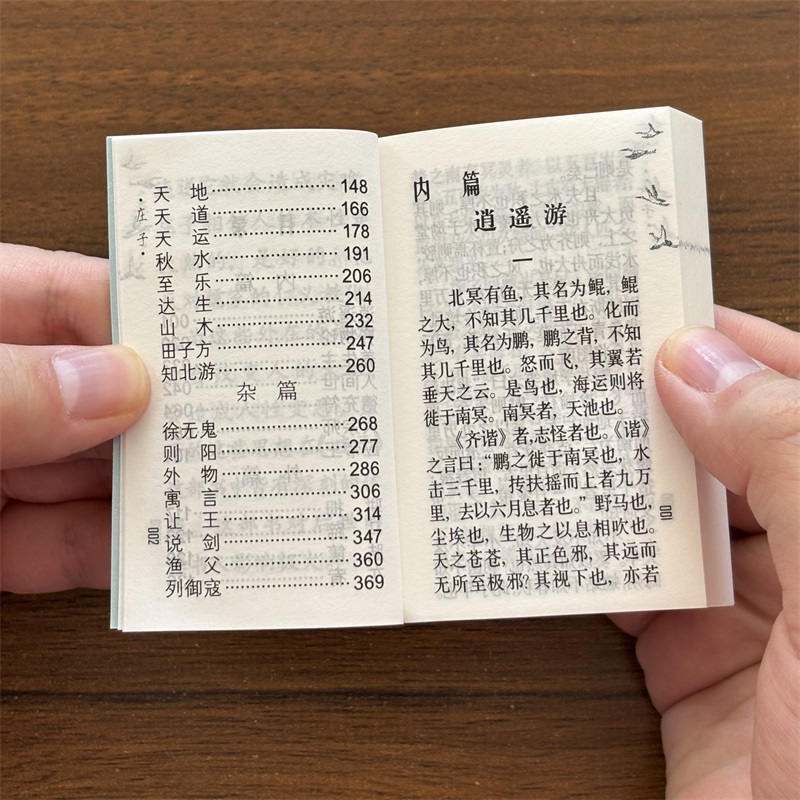 ·庄子·
天地 148
天道 166
天运 178
秋水 191
至乐 206
达生 214
山木 232
田子方 247
知北游 260
杂篇
徐无鬼 268
则阳 277
外物 286
寓言 306
让王 314
说剑 347
渔父 360
列御寇 369
002
内篇
逍遥游
一
北冥有鱼，其名为鲲，鲲
之大，不知其几千里也。化而
为鸟，其名为鹏，鹏之背，不知
其几千里也。怒而飞，其翼若
垂天之云。是鸟也，海运则将
徙于南冥。南冥者，天池也。
《齐谐》者，志怪者也。《谐》
之言曰：“鹏之徙于南冥也，水
击三千里，抟扶摇而上者九万
里，去以六月息者也。”野马也，
尘埃也，生物之以息相吹也。
天之苍苍，其正色邪，其远而
无所至极邪？其视下也，亦若
001